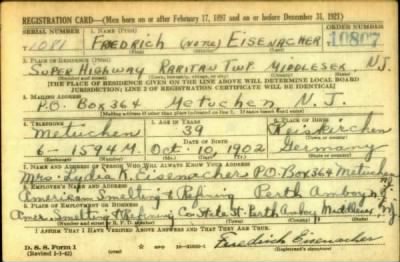 REGISTRATION CARD—(Men born on or after February 17, 1897 and on or before December 31, 1921)
SERIAL NUMBER 1. NAME (Print) ORDER NUMBER
1081 FREDRICH (NONE) EISENACHER 10807
2. PLACE OF RESIDENCE (Print)
SUPER HIGHWAY RARITAN TWP. MIDDLESEX N.J.
(THE PLACE OF RESIDENCE GIVEN ON THE LINE ABOVE WILL DETERMINE LOCAL BOARD
JURISDICTION; LINE 2 OF REGISTRATION CERTIFICATE WILL BE IDENTICAL)
3. MAILING ADDRESS
P.O. Box 364 Metuchen N. J.
4. TELEPHONE 5. AGE IN YEARS 6. PLACE OF BIRTH
Metuchen 39 Reiskirchen
DATE OF BIRTH
6-1594M Oct. 10, 1902 Germany
7. NAME AND ADDRESS OF PERSON WHO WILL ALWAYS KNOW YOUR ADDRESS
Mrs. Lydia K. Eisenacher P.O. Box 364 Metuchen
8. EMPLOYER'S NAME AND ADDRESS
American Smelting & Refining Perth Amboy N.J.
9. PLACE OF EMPLOYMENT OR BUSINESS
Amer. Smelting & Refining Co. State St. Perth Amboy Middlesex N.J.
I AFFIRM THAT I HAVE VERIFIED ABOVE ANSWERS AND THAT THEY ARE TRUE.
D. S. S. Form 1
(Revised 1-1-42)
Friedrich Eisenacher
(Registrant's signature)